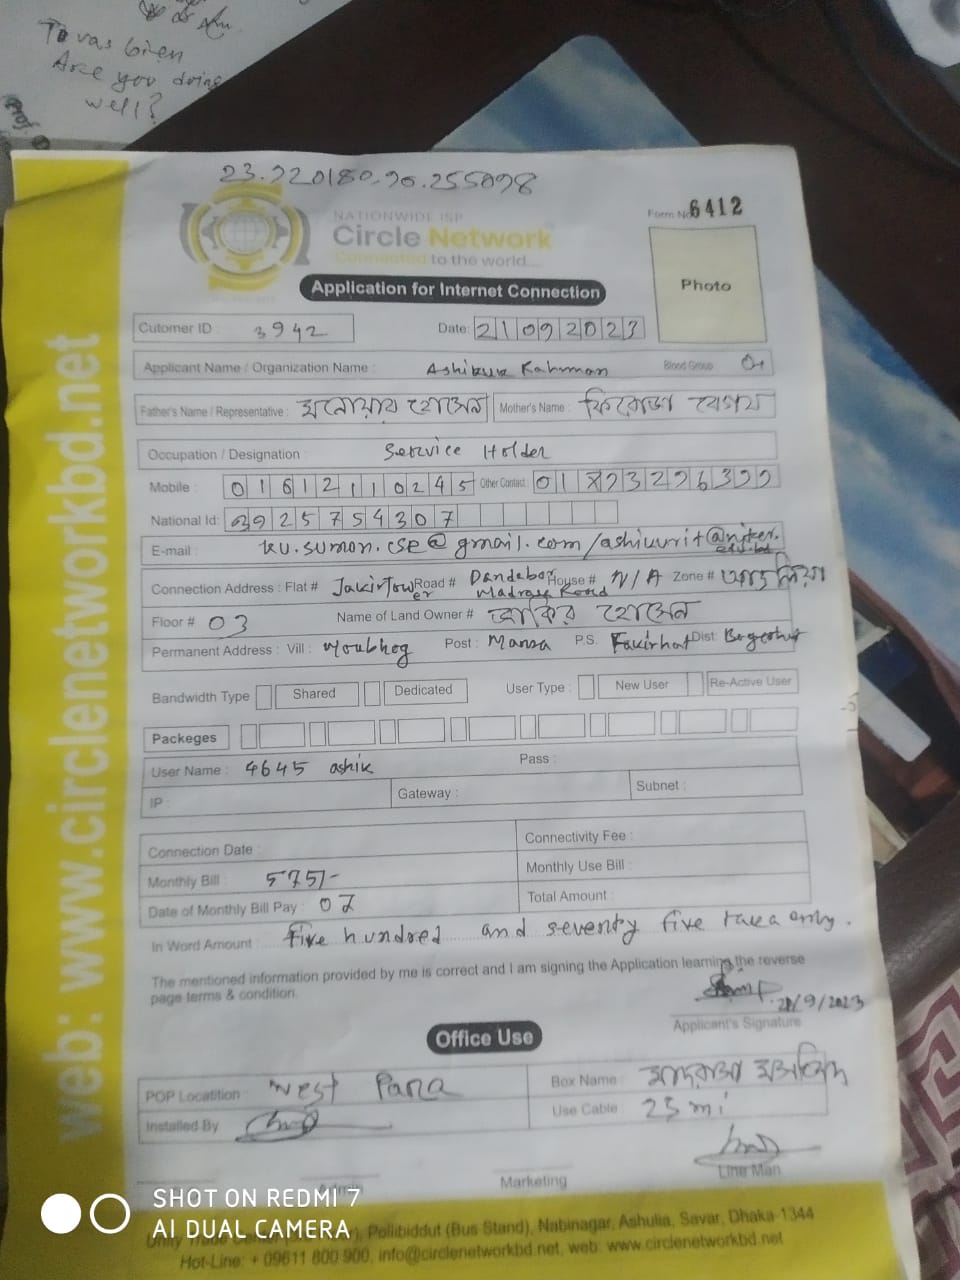 To vas bien
Are you doing
well?
Prof.
NATIONWIDE ISP
Circle Network
Connected to the world...
Form No 6412
Photo
Application for Internet Connection
Cutomer ID : 3942 Date: 21092023
Applicant Name / Organization Name : Ashikur Rahman Blood Group O+
Father's Name / Representative : মনোয়ার হোসেন Mother's Name : ফিরোজা বেগম
Occupation / Designation : Service Holder
Mobile : 01612110245 Other Contact :
National Id:
E-mail :
Connection Address : Flat # Jakir Tower Road # Dandabor Madrasa Road House # N/A Zone #
Floor # 03 Name of Land Owner # জাকির হোসেন
Permanent Address : Vill : Moubhog Post : Mansa P.S. Fakirhat Dist: Bagerhat
Bandwidth Type Shared Dedicated User Type : New User Re-Active User
Packeges
User Name : 4645 ashik Pass :
IP : Gateway : Subnet :
Connection Date : Connectivity Fee :
Monthly Bill : 575/- Monthly Use Bill :
Date of Monthly Bill Pay : 07 Total Amount :
In Word Amount : five hundred and seventy five taka only.
The mentioned information provided by me is correct and I am signing the Application learning the reverse
page terms & condition.
21/9/2023
Applicant's Signature
Office Use
POP Locatition : West Para Box Name :
Installed By Use Cable 25 mi
Line Man
Admin Marketing
Pollibiddut (Bus Stand), Nabinagar, Ashulia, Savar, Dhaka-1344
Hot-Line: + 09611 800 900, info@circlenetworkbd.net, web: www.circlenetworkbd.net
web: www.circlenetworkbd.net
SHOT ON REDMI 7
AI DUAL CAMERA